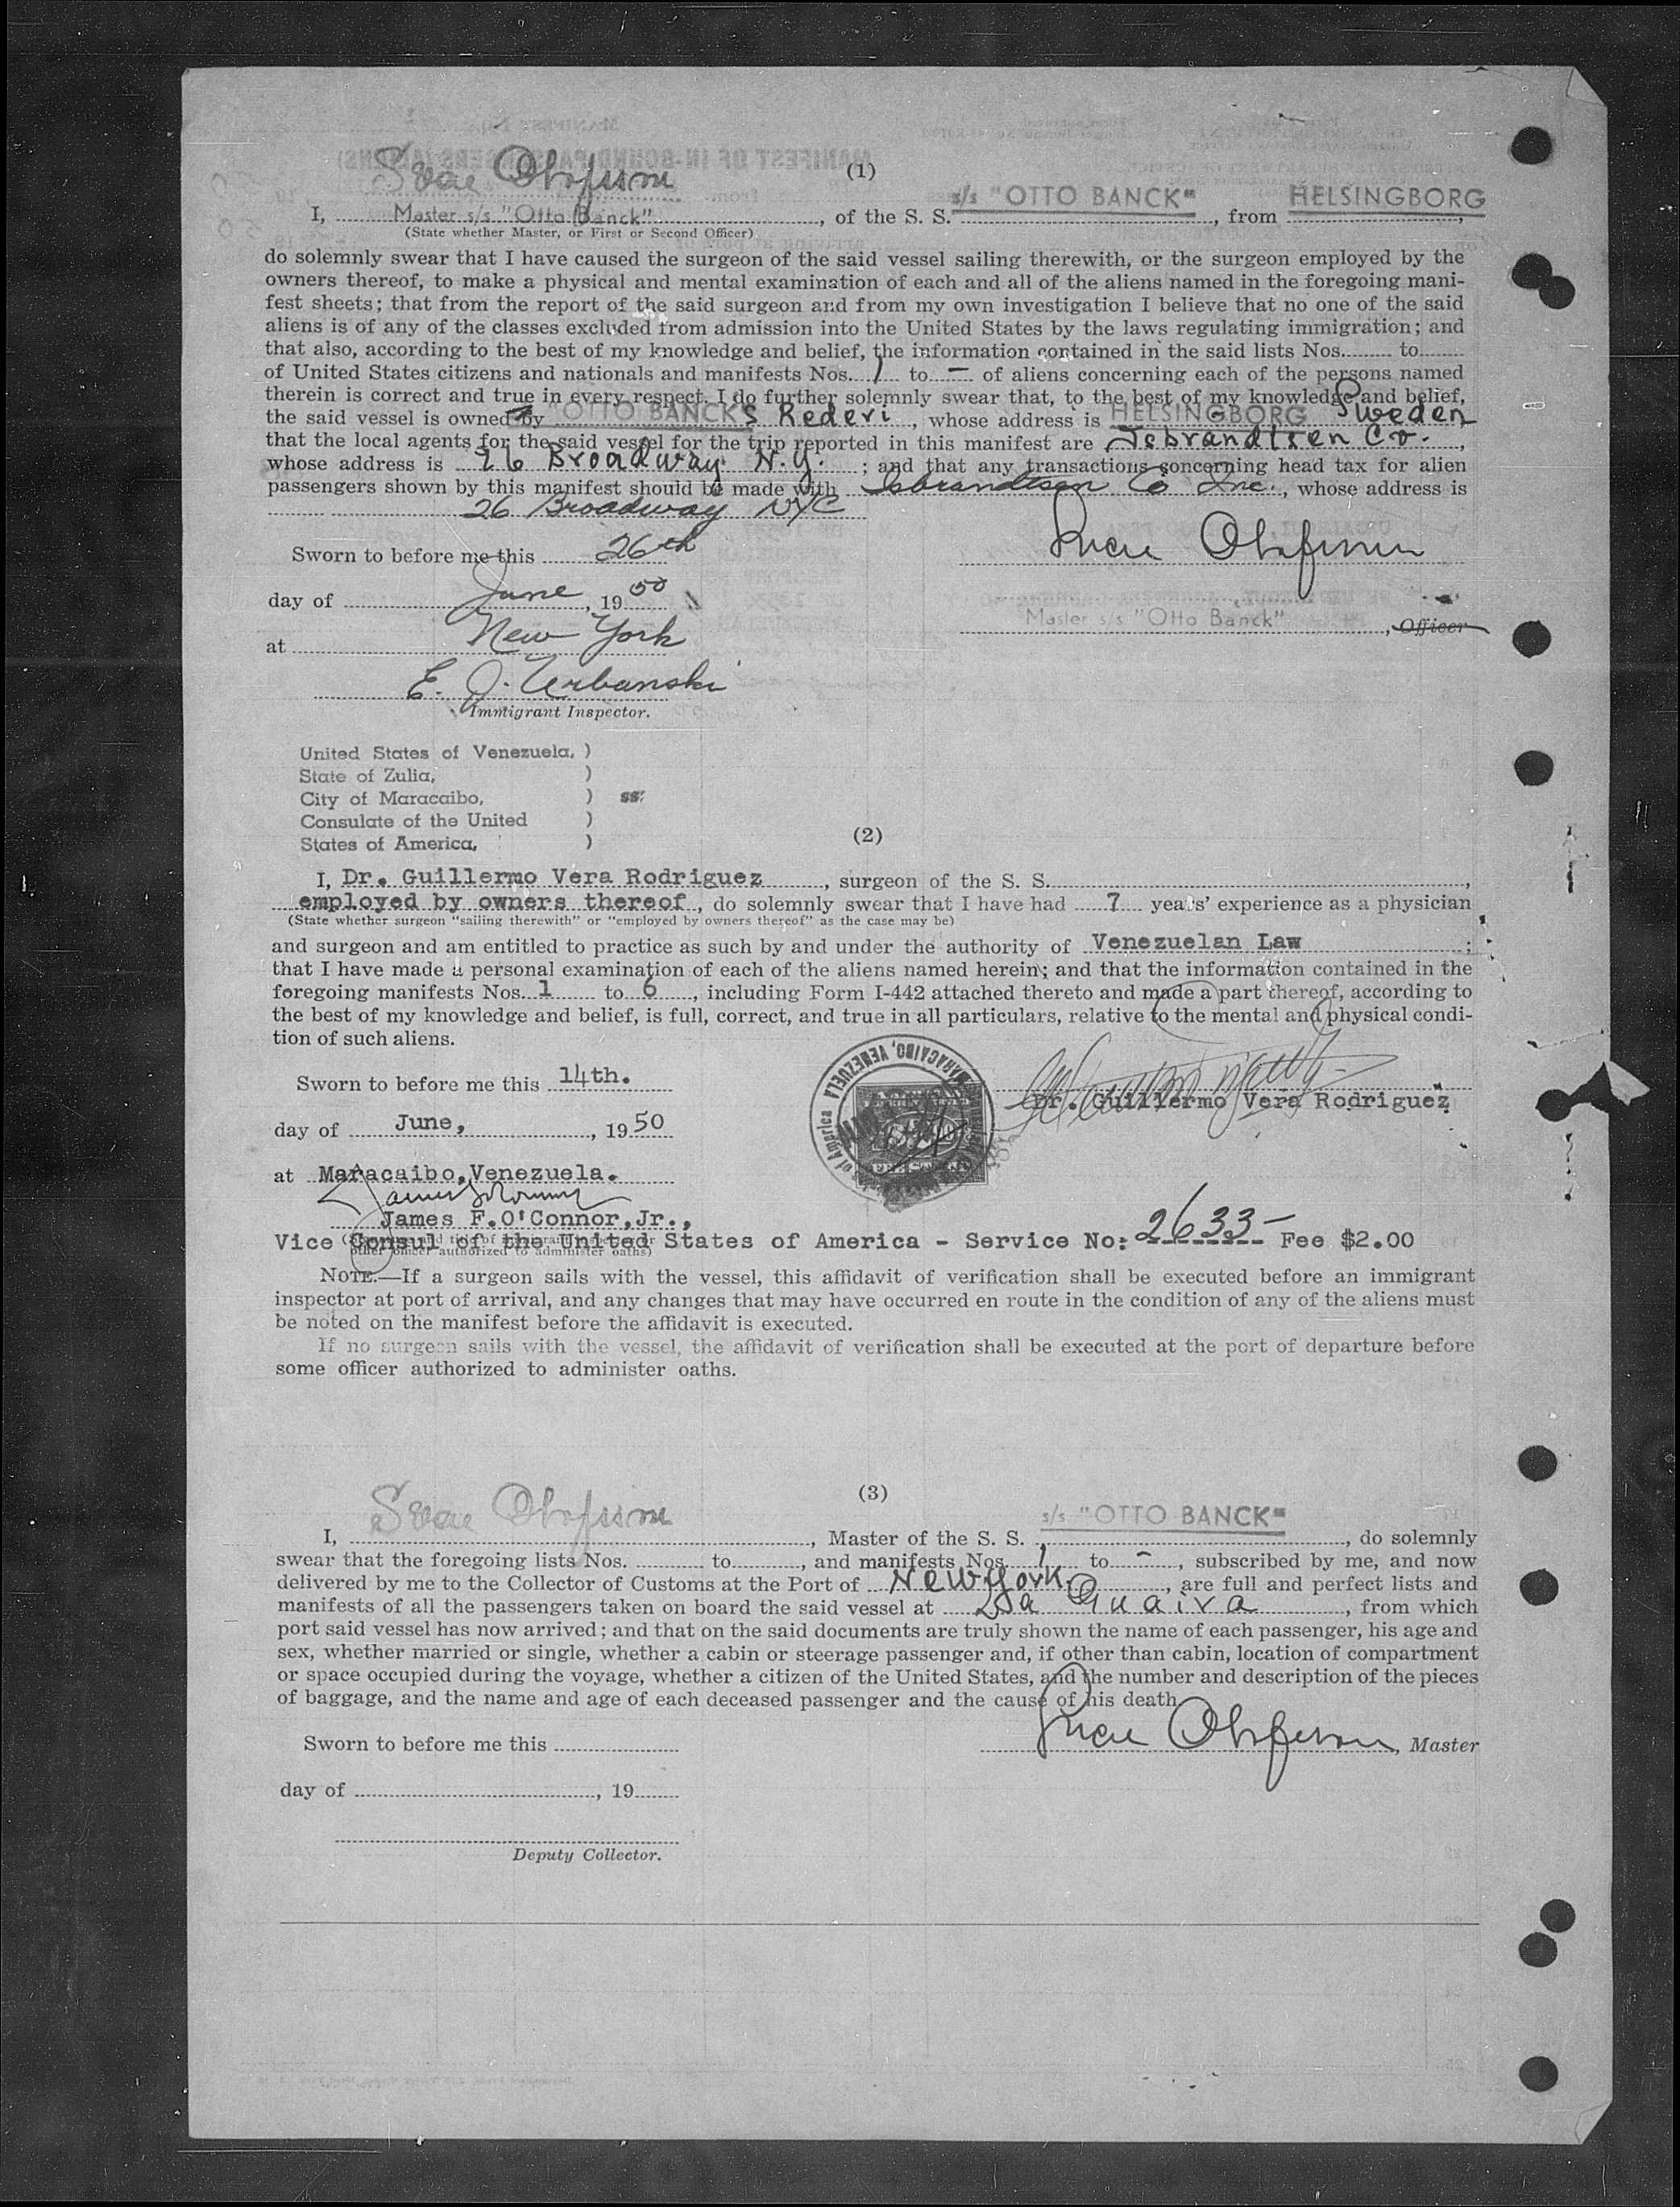 (1)
I, Master s/s "Otto Banck", of the S. S. s/s "OTTO BANCK", from HELSINGBORG,
(State whether Master, or First or Second Officer)
do solemnly swear that I have caused the surgeon of the said vessel sailing therewith, or the surgeon employed by the
owners thereof, to make a physical and mental examination of each and all of the aliens named in the foregoing mani-
fest sheets; that from the report of the said surgeon and from my own investigation I believe that no one of the said
aliens is of any of the classes excluded from admission into the United States by the laws regulating immigration; and
that also, according to the best of my knowledge and belief, the information contained in the said lists Nos. to
of United States citizens and nationals and manifests Nos. 1 to - of aliens concerning each of the persons named
therein is correct and true in every respect. I do further solemnly swear that, to the best of my knowledge and belief,
the said vessel is owned by "OTTO BANCKS Rederi, whose address is HELSINGBORG Sweden
that the local agents for the said vessel for the trip reported in this manifest are Isbrandtsen Co.,
whose address is 26 Broadway N.Y.; and that any transactions concerning head tax for alien
passengers shown by this manifest should be made with Isbrandtsen Co Inc., whose address is
26 Broadway NYC
Sworn to before me this 26th
day of June, 1950
at New York
E. J. Urbanski
Immigrant Inspector.
Master s/s "Otto Banck", Officer
United States of Venezuela, )
State of Zulia, )
City of Maracaibo, ) ss:
Consulate of the United )
States of America, )
(2)
I, Dr. Guillermo Vera Rodriguez, surgeon of the S. S.,
employed by owners thereof, do solemnly swear that I have had 7 years' experience as a physician
(State whether surgeon "sailing therewith" or "employed by owners thereof" as the case may be)
and surgeon and am entitled to practice as such by and under the authority of Venezuelan Law;
that I have made a personal examination of each of the aliens named herein; and that the information contained in the
foregoing manifests Nos. 1 to 6, including Form I-442 attached thereto and made a part thereof, according to
the best of my knowledge and belief, is full, correct, and true in all particulars, relative to the mental and physical condi-
tion of such aliens.
Sworn to before me this 14th.
day of June, 1950
at Maracaibo, Venezuela.
MARACAIBO, VENEZUELA
of America
Dr. Guillermo Vera Rodriguez
James F. O'Connor, Jr.,
Vice Consul of the United States of America - Service No: 2633- Fee $2.00
other officer authorized to administer oaths)
NOTE.—If a surgeon sails with the vessel, this affidavit of verification shall be executed before an immigrant
inspector at port of arrival, and any changes that may have occurred en route in the condition of any of the aliens must
be noted on the manifest before the affidavit is executed.
If no surgeon sails with the vessel, the affidavit of verification shall be executed at the port of departure before
some officer authorized to administer oaths.
(3)
I, , Master of the S. S. s/s "OTTO BANCK", do solemnly
swear that the foregoing lists Nos. to , and manifests Nos. 1 to -, subscribed by me, and now
delivered by me to the Collector of Customs at the Port of New York, are full and perfect lists and
manifests of all the passengers taken on board the said vessel at La Guaira, from which
port said vessel has now arrived; and that on the said documents are truly shown the name of each passenger, his age and
sex, whether married or single, whether a cabin or steerage passenger and, if other than cabin, location of compartment
or space occupied during the voyage, whether a citizen of the United States, and the number and description of the pieces
of baggage, and the name and age of each deceased passenger and the cause of his death.
Sworn to before me this
, Master
day of , 19
Deputy Collector.